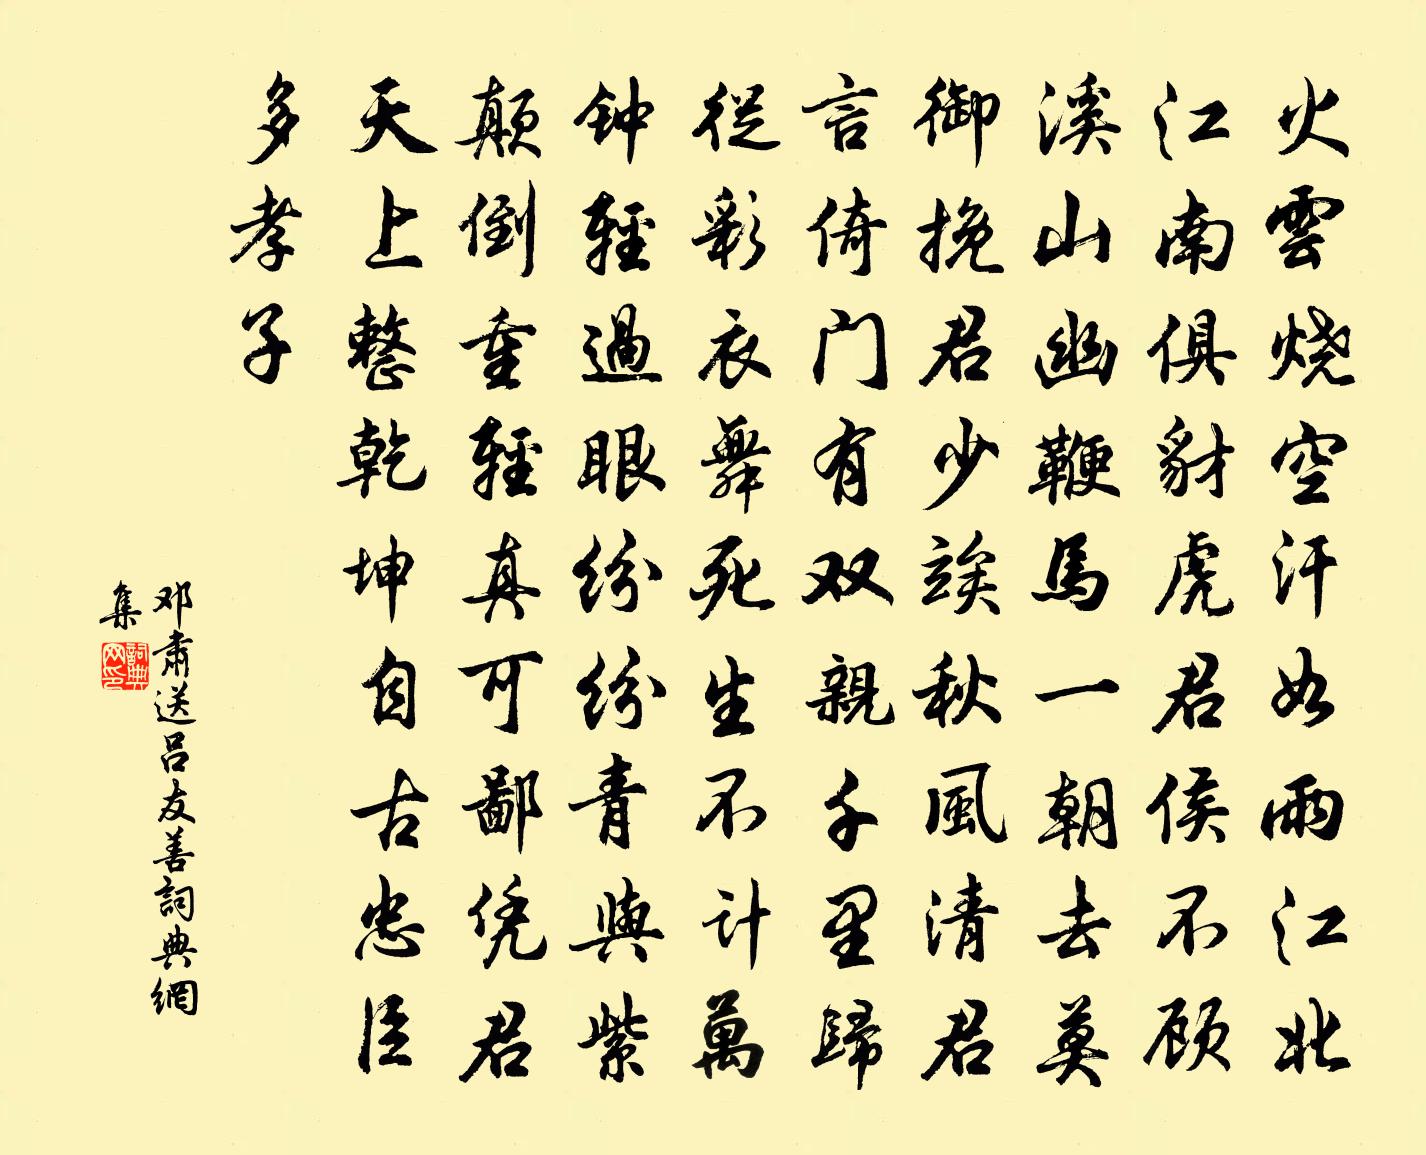 火雲烧空汗如雨江北
江南俱豺虎君侯不顾
溪山幽鞭馬一朝去莫
御挽君少俟秋風清君
言倚门有双親千里歸
從彩衣舞死生不计萬
钟輕過眼纷纷青與紫
颠倒重輕真可鄙凭君
天上整乾坤自古忠臣
多孝子
邓肃送吕友善詞典網
集
詞典
网印